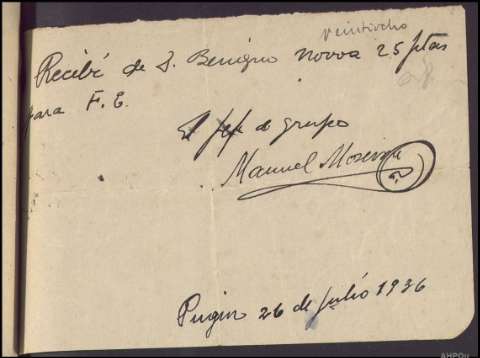 veintiocho
Recibí de D. Benigno Novoa 25 ptas
para F. E.
El jefe de grupo
Manuel
26 de julio 1936
AHPOu